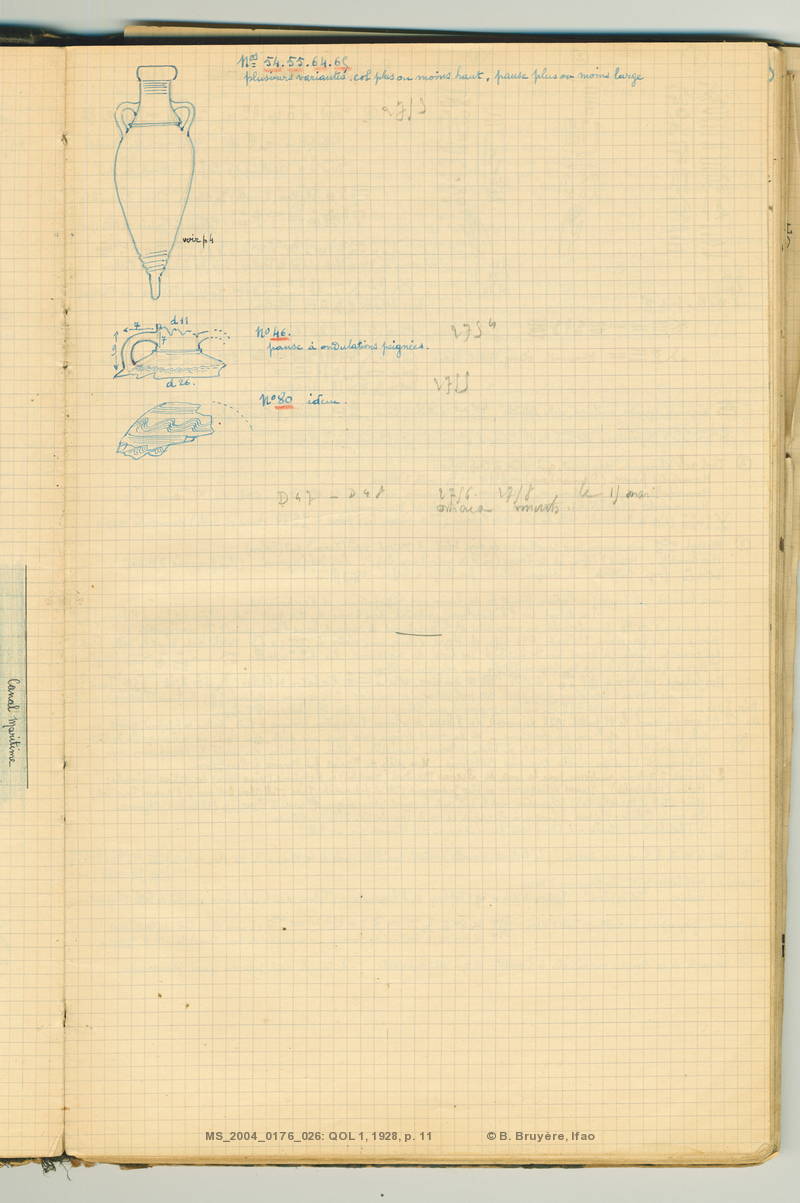 Nos 54.55.64.65
plusieurs variantes. col plus ou moins haut, panse plus ou moins large
voir p 4
7
d 11
7
9
d 26.
No 46.
panse à ondulations peignées.
No 80 idem.
D 47 - D 48
le
Canal Maritime
MS_2004_0176_026: QOL 1, 1928, p. 11
© B. Bruyère, Ifao